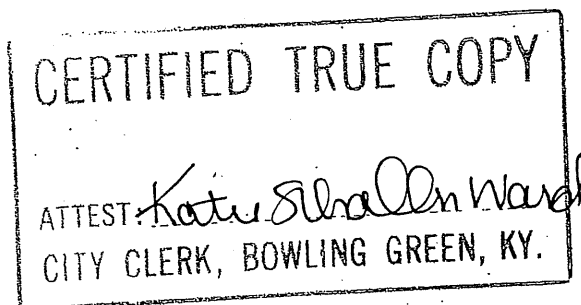 CERTIFIED TRUE COPY
ATTEST: Katie
CITY CLERK, BOWLING GREEN, KY.